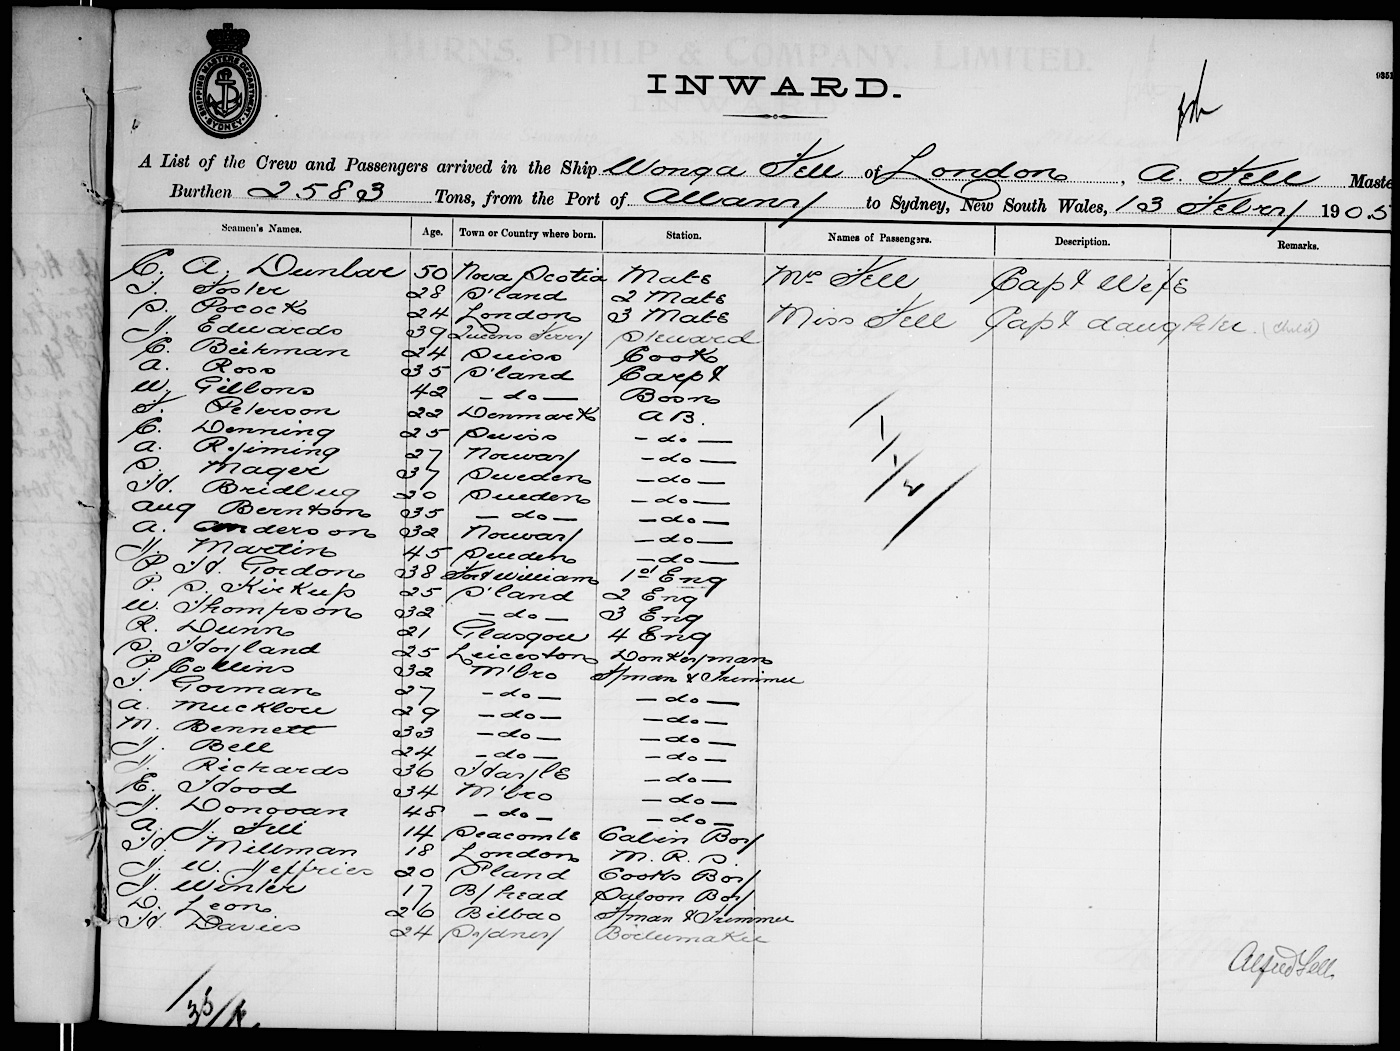 SHIPPING MASTERS DEPARTMENT SYDNEY
INWARD.
A List of the Crew and Passengers arrived in the Ship Wonga Fell of London, A. Fell Maste
Burthen 2583 Tons, from the Port of Albany to Sydney, New South Wales, 13 Febry 1905
Seamen's Names. Age. Town or Country where born. Station. Names of Passengers. Description. Remarks.
C. A. Dunbar 50 Nova Scotia Mate Mrs Fell Capt Wife
T. Foster 28 S'land 2 Mate
S. Pocock 24 London 3 Mate Miss Fell Capt daughter (child)
J. Edwards 39 Queens Ferry Steward
C. Beekman 24 Swiss Cook
A. Ross 35 S'land Carpt
W. Gibbons 42 -do- Bosn
F. Peterson 22 Denmark A B.
C. Denning 25 Swiss -do-
A. 27 Norway -do-
S. Mager 37 Sweden -do-
H. 20 Sweden -do-
Aug Berntson 35 -do- -do-
A. Anderson 32 Norway -do-
J. Martin 45 Sweden -do-
P. H. Gordon 38 Fort William 1st Eng
P. S. Kirkup 25 S'land 2 Eng
W. Thompson 32 -do- 3 Eng
R. Dunn 21 Glasgow 4 Eng
S. Hoyland 25 Donkeyman
P. Collins 32 M'bro Fman & Trimmer
T. Gorman 27 -do- -do-
A. Mucklow 29 -do- -do-
M. Bennett 33 -do- -do-
J. Bell 24 -do- -do-
J. Richards 36 Hayle -do-
E. Hood 34 M'bro -do-
J. Donovan 48 -do- -do-
A. J. Fell 14 Seacombe Cabin Boy
H. Millman 18 London M. R. S.
J. W. Jeffries 20 S'land Cooks Boy
J. Winter 17 B/head Saloon Boy
D. Leon 26 Bilbao Fman & Trimmer
H. Davies 24 Sydney Boilermaker
Alfred Fell